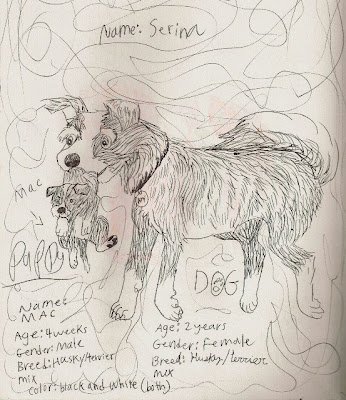 Name: Serina
Mac
Puppy
DOG
Name:
MAC
Age: 4 weeks
Gender: Male
Breed: Husky/terrier
mix
Color: black and white (both)
Age: 2 years
Gender: Female
Breed: Husky/terrier
mix